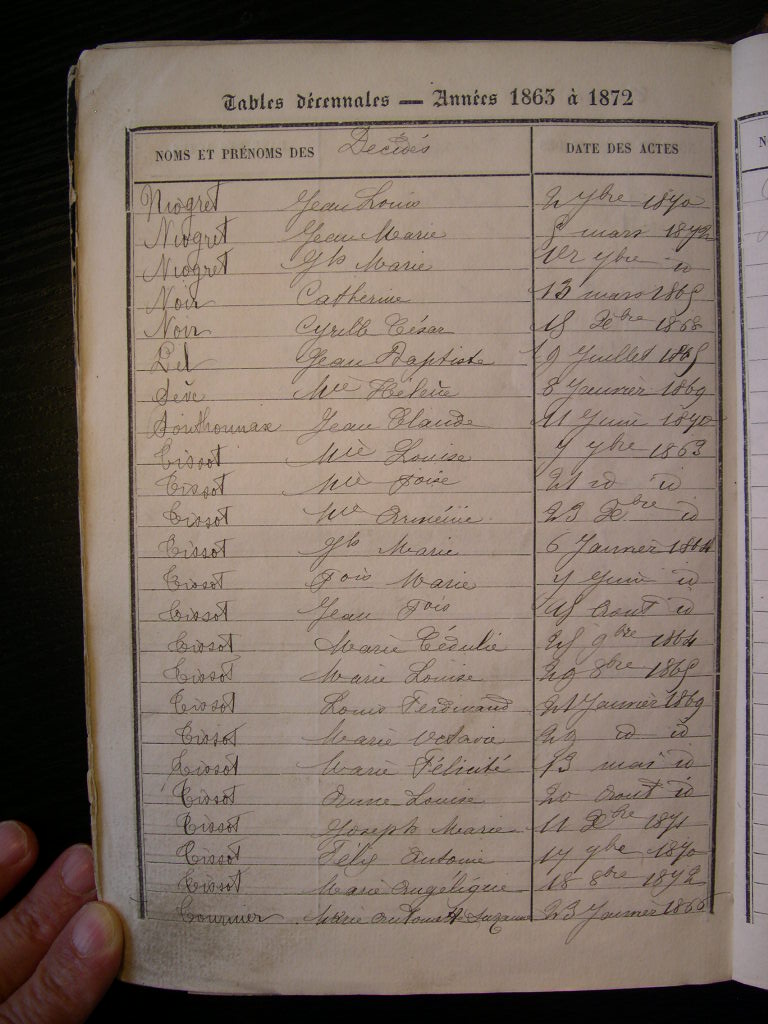 Tables décennales — Années 1863 à 1872
NOMS ET PRÉNOMS DES Décédés DATE DES ACTES
Niogret Jean Louis 2 7bre 1870
Niogret Jean Marie 5 mars 1872
Niogret Jh Marie 1er 7bre id
Noir Catherine 13 mars 1865
Noir Cyrille César 15 Xbre 1868
Pel Jean Baptiste 19 Juillet 1865
Sève Mie Hélène 8 Janvier 1869
Southonnax Jean Claude 11 Juin 1870
Tissot Mie Louise 7 7bre 1863
Tissot Mie Foise 21 id id
Tissot Mie Arménie 23 Xbre id
Tissot Jh Marie 6 Janvier 1864
Tissot Fois Marie 7 Juin id
Tissot Jean Fois 15 Aout id
Tissot Marie Cédulie 25 9bre 1864
Tissot Marie Louise 29 8bre 1865
Tissot Louis Ferdinand 21 Janvier 1869
Tissot Marie Octavie 29 id id
Tissot Marie Félicité 13 mai id
Tissot Anne-Louise 20 Aout id
Tissot Joseph Marie 11 Xbre 1871
Tissot Félix Antoine 17 7bre 1870
Tissot Marie Angélique 18 8bre 1872
Tournier Marie Suzanne 23 Janvier 1866